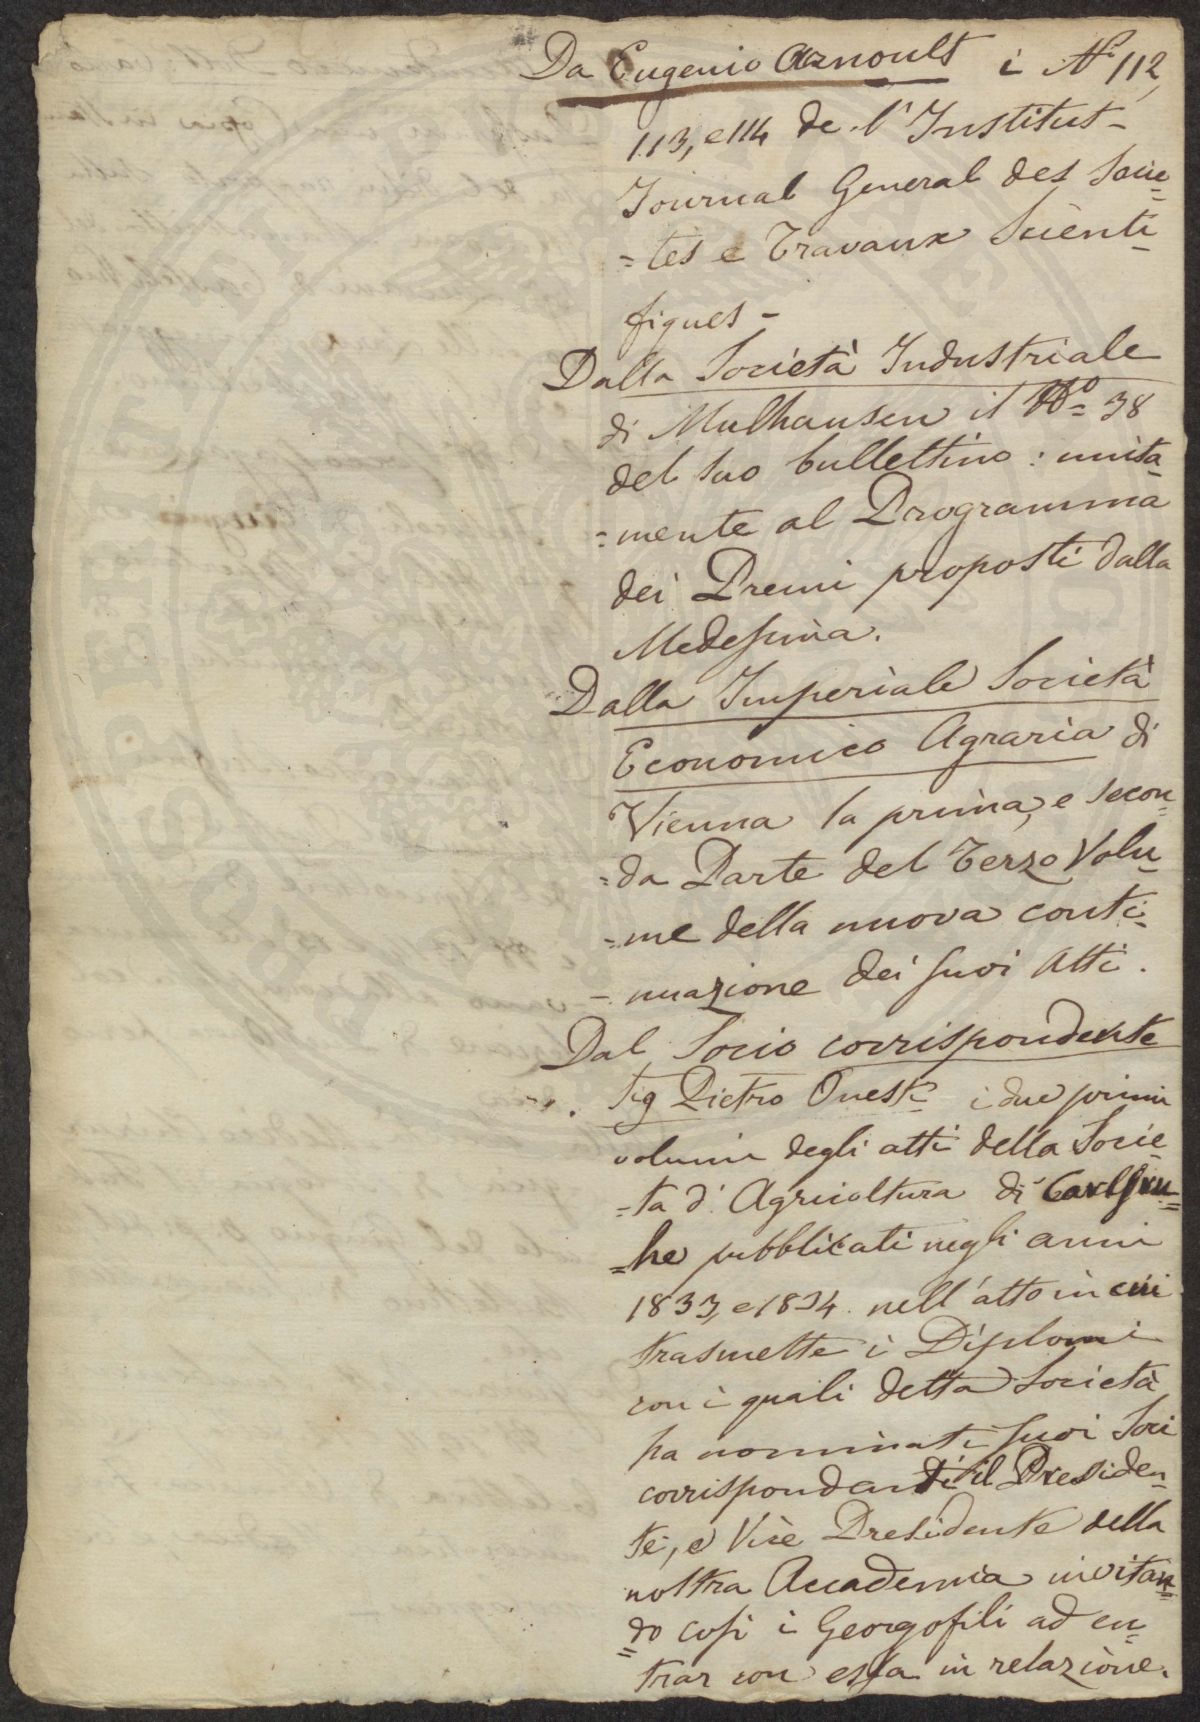 Da Eugenio Arnoult i Ni 112,
113, e 114 de l'Institut -
Journal General des Socie=
=tés e Travaux Scienti=
fiques -
Dalla Società Industriale
di Mulhausen il No= 38
del suo bullettino: unita=
=mente al Programma
dei Premi proposti dalla
Medesima.
Dalla Imperiale Società
Economico Agraria di
Vienna la prima, e secon=
=da Parte del Terzo Volu=
=me della nuova conti=
- nuazione dei suoi Atti.
Dal Socio corrispondente
Sig Pietro Onesti i due primi
volumi degli atti della Socie=
=ta d'Agricoltura di Carlsru=
=he pubblicati negli anni
1833, e 1834. nell'atto in cui
trasmette i Diplomi
con i quali detta Società
ha nominati suoi Soci
corrispondenti il Presiden=
te, e Vice Presidente della
nostra Accademia invitan=
=do così i Georgofili ad en=
trar con essa in relazione.